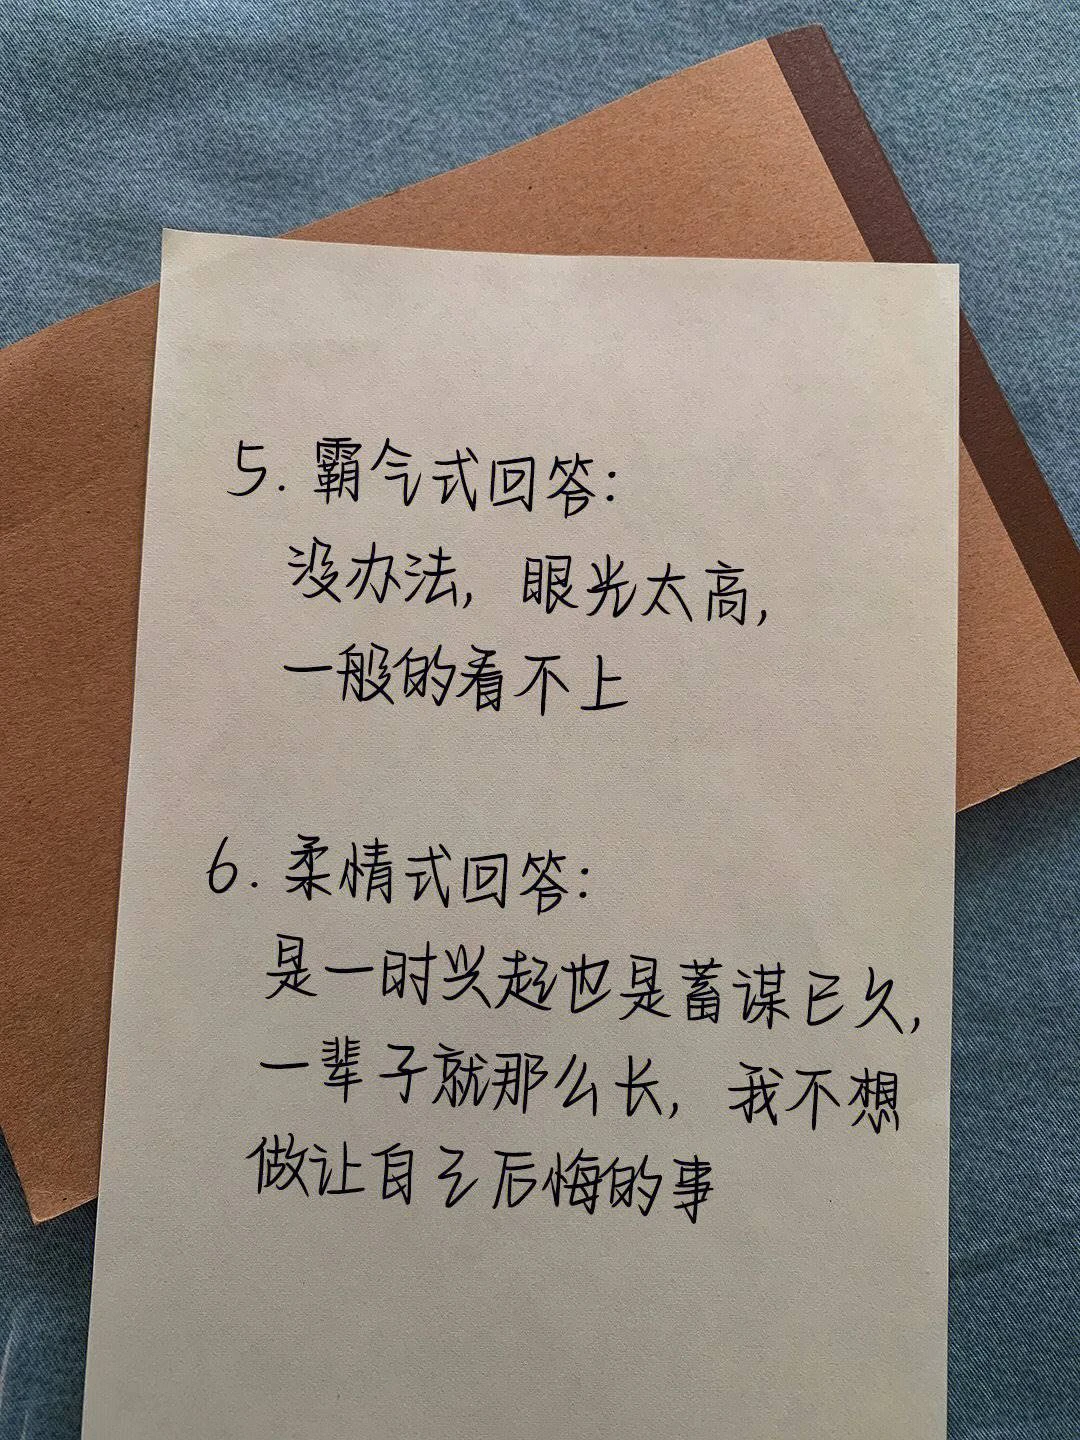 5. 霸气式回答:
没办法, 眼光太高,
一般的看不上
6. 柔情式回答:
是一时兴起也是蓄谋已久,
一辈子就那么长, 我不想
做让自己后悔的事